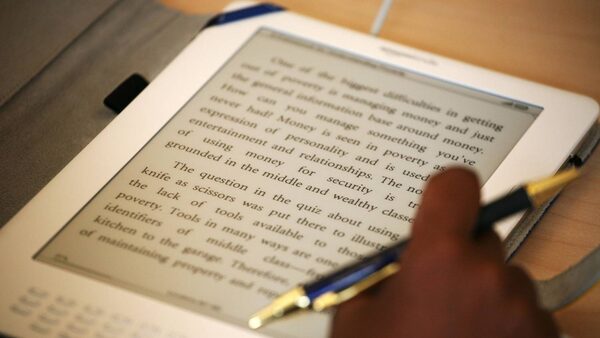 One of the biggest difficulties in getting
out of poverty is managing money and just
the general information base around money.
How can you manage something you've
never had? Money is seen in poverty as
expression of personality and is used
entertainment and relationships. The no
of using money for security is tr
grounded in the middle and wealthy classe
The question in the quiz about using
knife as scissors was put there to illustr
the lack of tools available to thos
poverty. Tools in many ways are one
identifiers of middle class—fr
kitchen to the garage. Therefore,
of maintaining property and